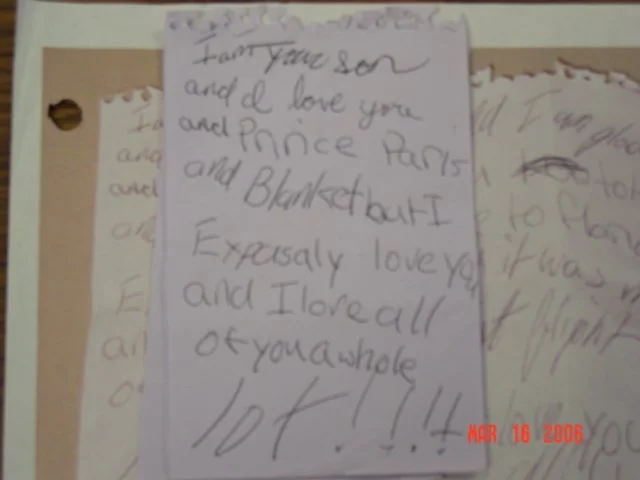 I am your son
and I love you
and Prince Paris
and Blanket but I
Expasaly love you
and I love all
of you a whole
lot!!!!
d I am glad
to Florid
it was m
t flight
you
MAR 16 2006